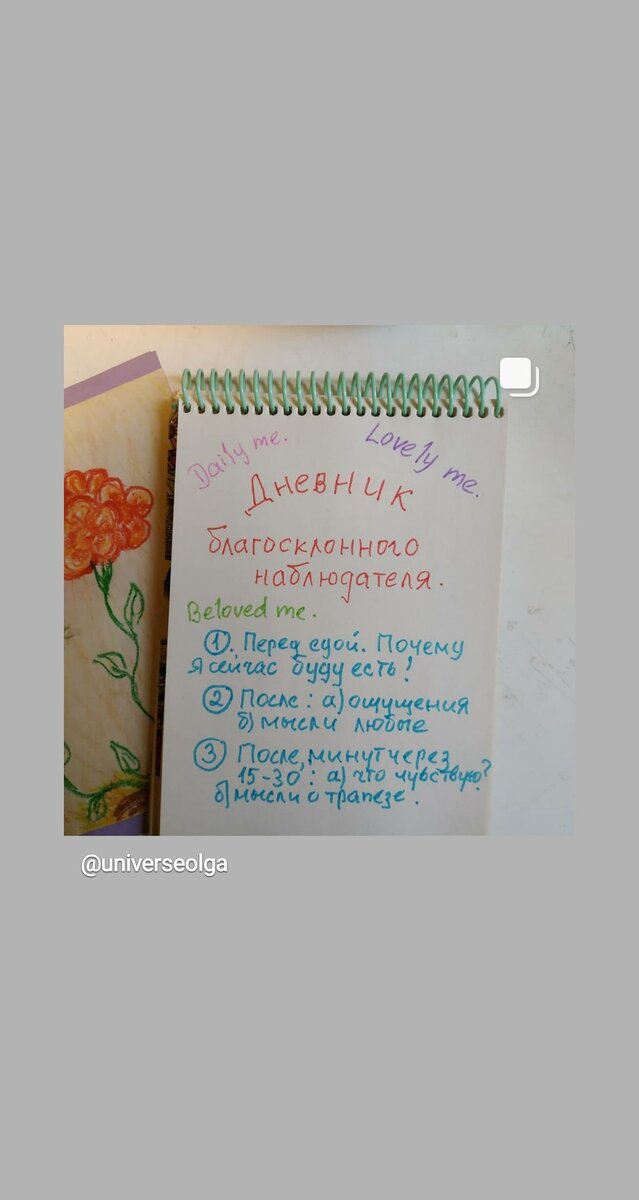 Daily me.
Lovely me.
Дневник
благосклонного
наблюдателя.
Beloved me.
1. Перед едой. Почему
я сейчас буду есть!
2 После: а) ощущения
б) мысли любые
3 После, минут через
15-30: а) что чувствую?
б) мысли о трапезе.
@universeolga